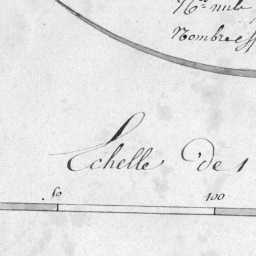 N.os mile
Nombre
Echelle de 1
50 100